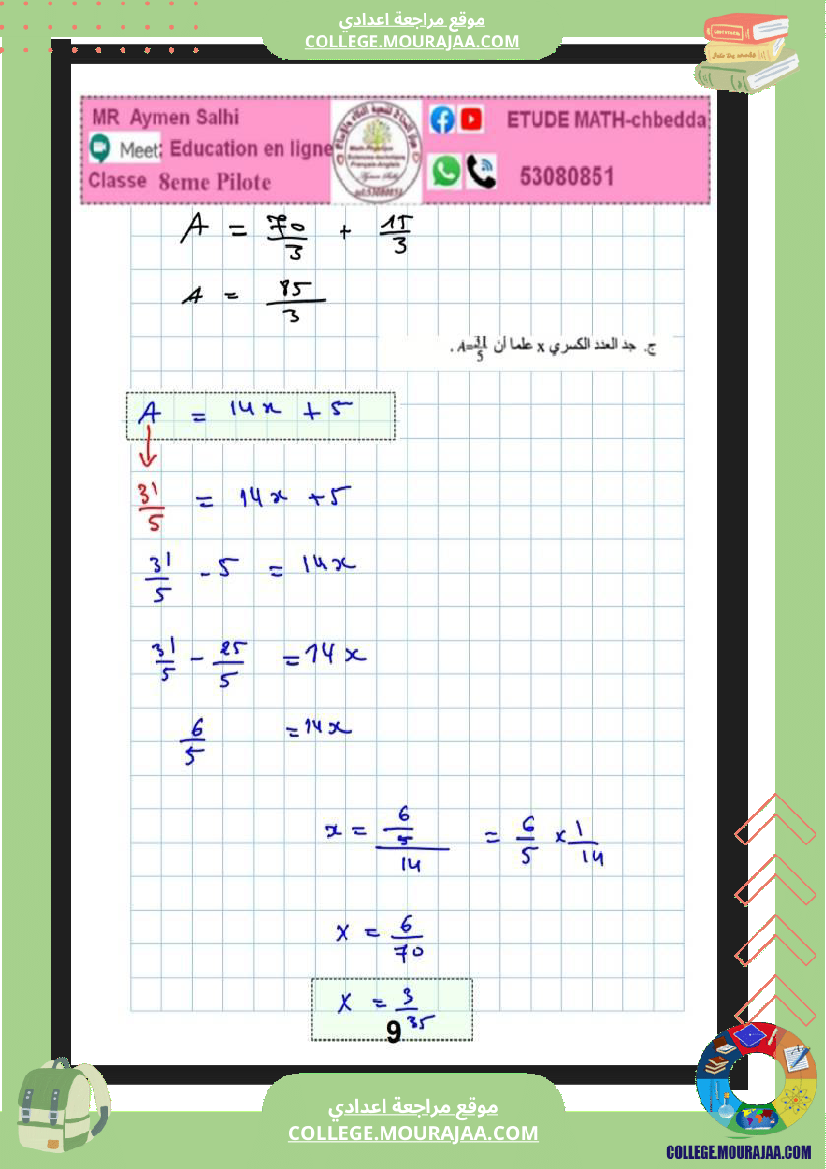 موقع مراجعة اعدادي
COLLEGE.MOURAJAA.COM
MR Aymen Salhi
Meet: Education en ligne
Classe 8eme Pilote
ETUDE MATH-chbedda
53080851
A = 70/3 + 15/3
A = 85/3
ج. جد العدد الكسري x علما أن A=31/5 .
A = 14x + 5
31/5 = 14x + 5
31/5 - 5 = 14x
31/5 - 25/5 = 14x
6/5 = 14x
x = (6/5)/14 = 6/5 x 1/14
x = 6/70
x = 3/35
9
موقع مراجعة اعدادي
COLLEGE.MOURAJAA.COM
COLLEGE.MOURAJAA.COM